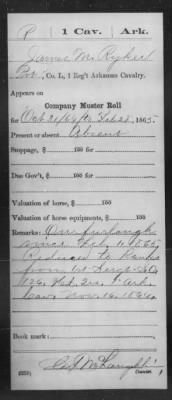 R | 1 Cav. | Ark.
James M. Ryker
Pvt., Co. L, 1 Reg't Arkansas Cavalry.
Appears on
Company Muster Roll
for Oct 31/64 to Feb 28, 1865.
Present or absent Absent
Stoppage, $ 100 for
Due Gov't, $ 100 for
Valuation of horse, $ 100
Valuation of horse equipments, $ 100
Remarks: On furlough
since Feb 11 1865
Reduced to Ranks
from 1st Sergt S.O.
Hd. Qrs. 1st Ark.
Cav. Nov. 14 1864.
Book mark:
(858)
Copyist.